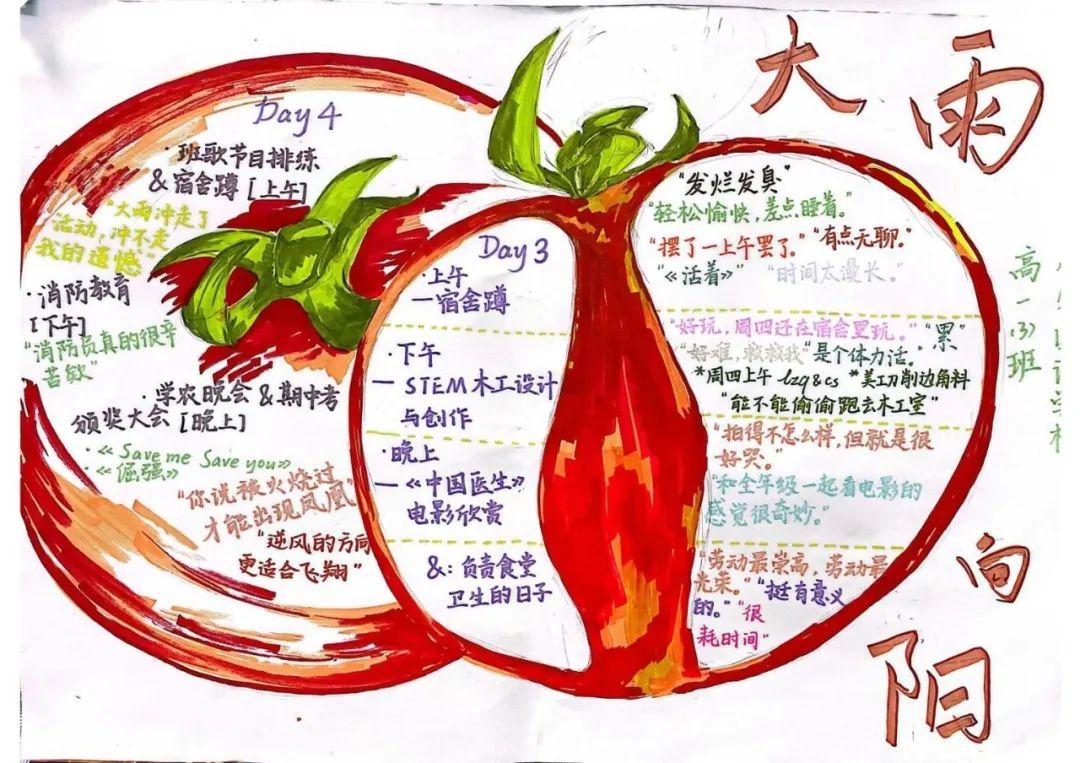 大雨
向
阳
高一(3)班
Day 4
·班歌节目排练
&宿舍蹲[上午]
"大雨冲走了
活动,冲不走
我的遗憾"
·消防教育
[下午]
"消防员真的很辛
苦欸"
·学农晚会&期中考
颁奖大会[晚上]
·《Save me Save you》
·《倔强》
"你说被火烧过
才能出现凤凰"
"逆风的方向
更适合飞翔"
Day 3
·上午
—宿舍蹲
·下午
—STEM木工设计
与创作
·晚上
—《中国医生》
电影欣赏
&:负责食堂
卫生的日子
"发烂发臭"
"轻松愉快,差点睡着。"
"摆了一上午罢了。" "有点无聊。"
"《活着》" "时间太漫长。"
"好玩,周四还在宿舍里玩。" "累"
"好难,救救我" "是个体力活。
*周四上午 lzq&cs *美工刀削边角料
"能不能偷偷跑去木工室"
"拍得不怎么样,但就是很
好哭。"
"和全年级一起看电影的
感觉很奇妙。"
"劳动最崇高,劳动最
光荣。" "挺有意义
的。" "很
耗时间"